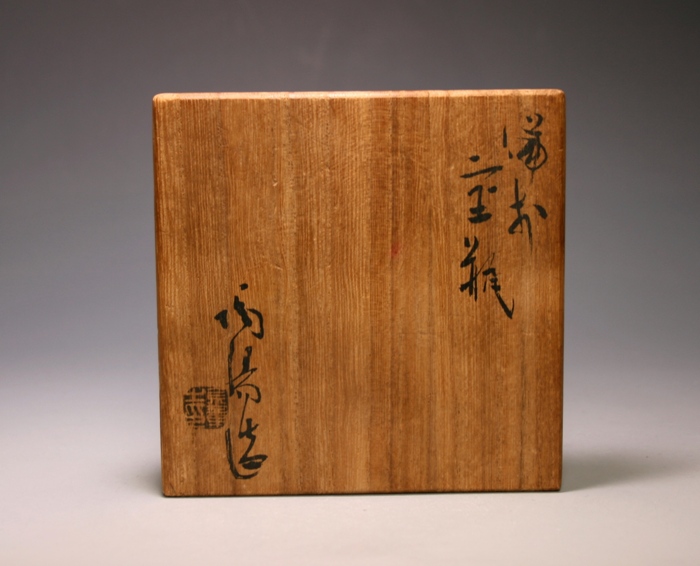 備前
宝瓶
陶陽造